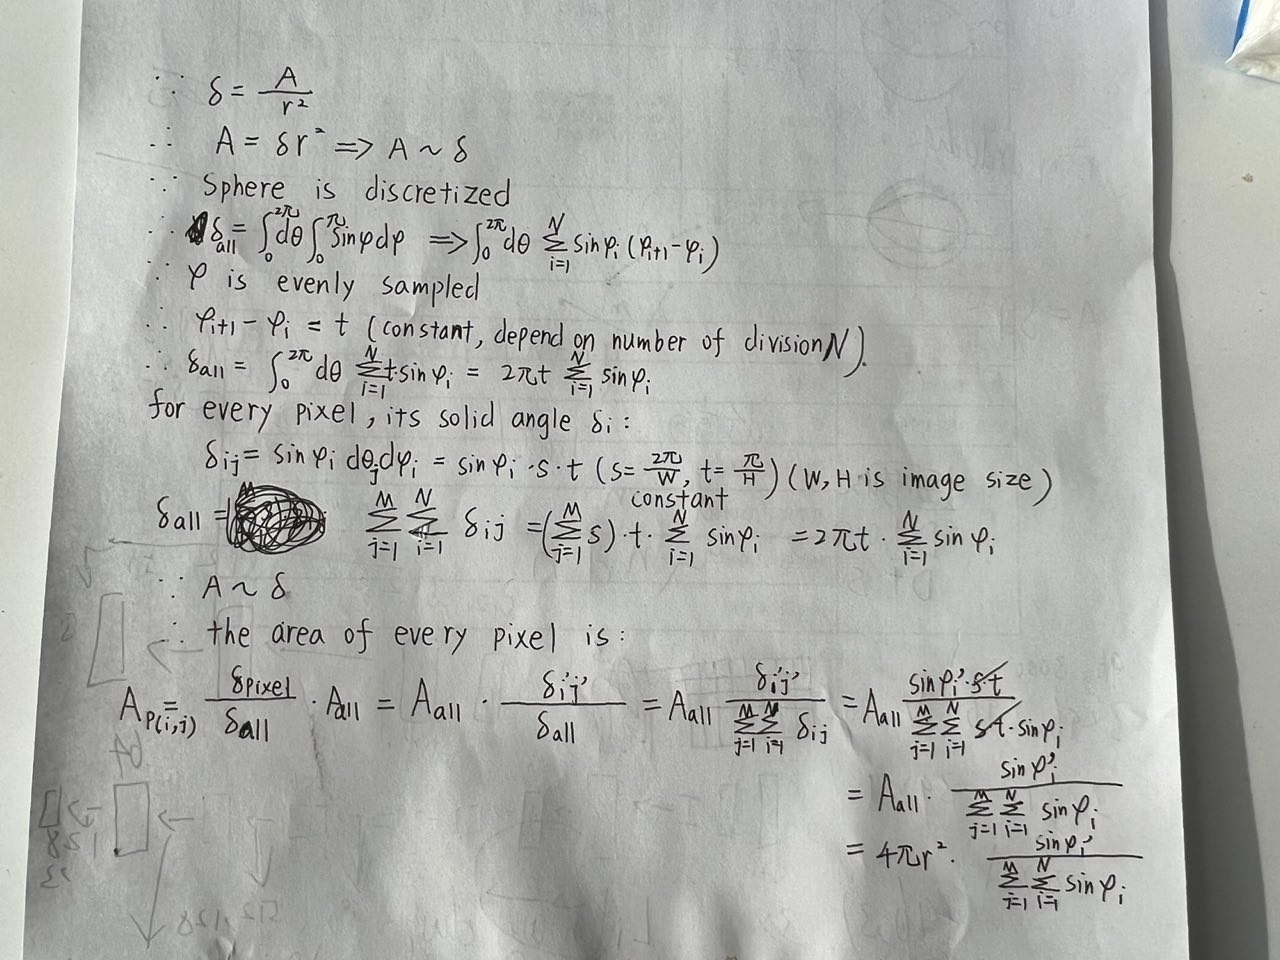 ∵ δ = A / r²
∴ A = δr² => A ~ δ
∵ Sphere is discretized
∴ δall = ∫₀^2π dθ ∫₀^π sinφdφ => ∫₀^2π dθ Σ_{i=1}^N sinφi (φi+1 - φi)
∵ φ is evenly sampled
∴ φi+1 - φi = t (constant, depend on number of division N).
∴ δall = ∫₀^2π dθ Σ_{i=1}^N t·sinφi = 2πt Σ_{i=1}^N sinφi
for every pixel, its solid angle δi:
δij = sinφi dθj dφi = sinφi · s · t (s = 2π/W, t = π/H) (W, H is image size)
constant
δall = Σ_{j=1}^M Σ_{i=1}^N δij = (Σ_{j=1}^M s) · t · Σ_{i=1}^N sinφi = 2πt · Σ_{i=1}^N sinφi
∵ A ~ δ
∴ the area of every pixel is:
A_P(i,j) = δpixel / δall · Aall = Aall · δi'j' / δall = Aall δi'j' / Σ_{j=1}^M Σ_{i=1}^N δij = Aall sinφi'·s·t / Σ_{j=1}^M Σ_{i=1}^N s·t·sinφi
= Aall · sinφi' / Σ_{j=1}^M Σ_{i=1}^N sinφi
= 4πr² · sinφi' / Σ_{j=1}^M Σ_{i=1}^N sinφi